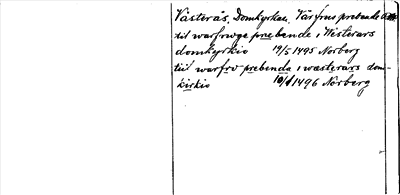 Västerås, Domkyrkan. Vårfru prebende
til warfrwge præbende i Wisterars
domkyrkio 19/5 1495 Norberg
till warfrv prebenda i wæsterars dom-
kirkio 10/1 1496 Norberg